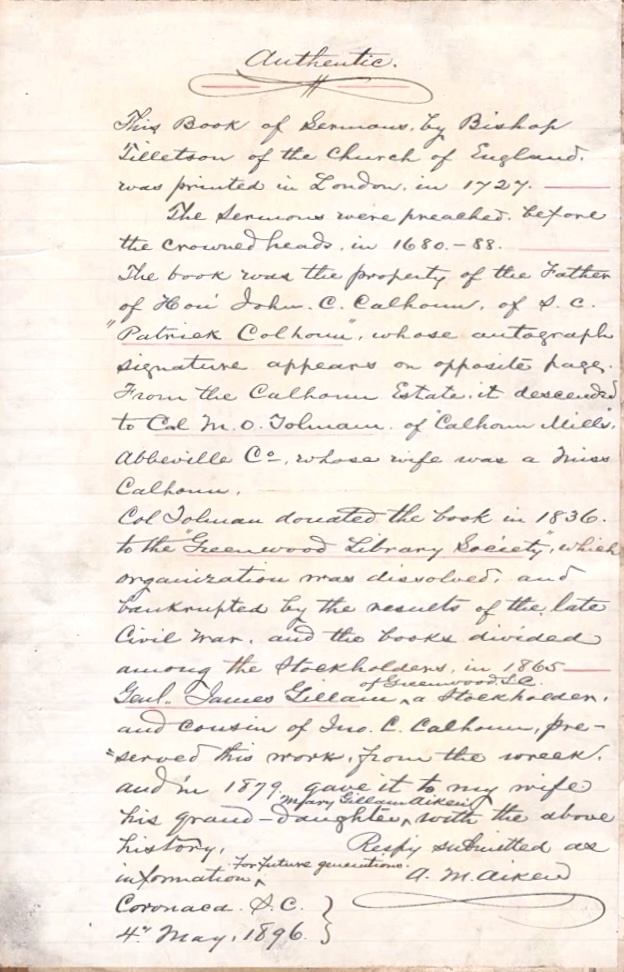 Authentic.
This Book of Sermons, by Bishop
Tilletson of the Church of England.
was printed in London, in 1727.
The Sermons were preached, before
the crowned heads, in 1680.-88.
The book was the property of the Father
of Hon' John. C. Calhoun, of S. C.
"Patrick Colhoun", whose autograph
signature appears on opposite page.
From the Calhoun Estate, it descended
to Col M. O. Tolmam. of "Calhoun Mills",
Abbeville Co., whose wife was a Miss
Calhoun.
Col Tolman donated the book in 1836.
to the "Greenwood Library Society", which
organization was dissolved, and
bankrupted by the results of the late
Civil War, and the books divided
among the Stockholders, in 1865
of Greenwood S.C.
Genl. James Gillam, a Stockholder,
and cousin of Jno. C. Calhoun, pre-
=served this work, from the wreck,
and in 1879, gave it to my wife
Mary Gillam Aiken
his grand-daughter, with the above
history. Respy submitted as
For future generations.
information, A. M. Aiken
Coronaca. S.C. }
4th May, 1896. }